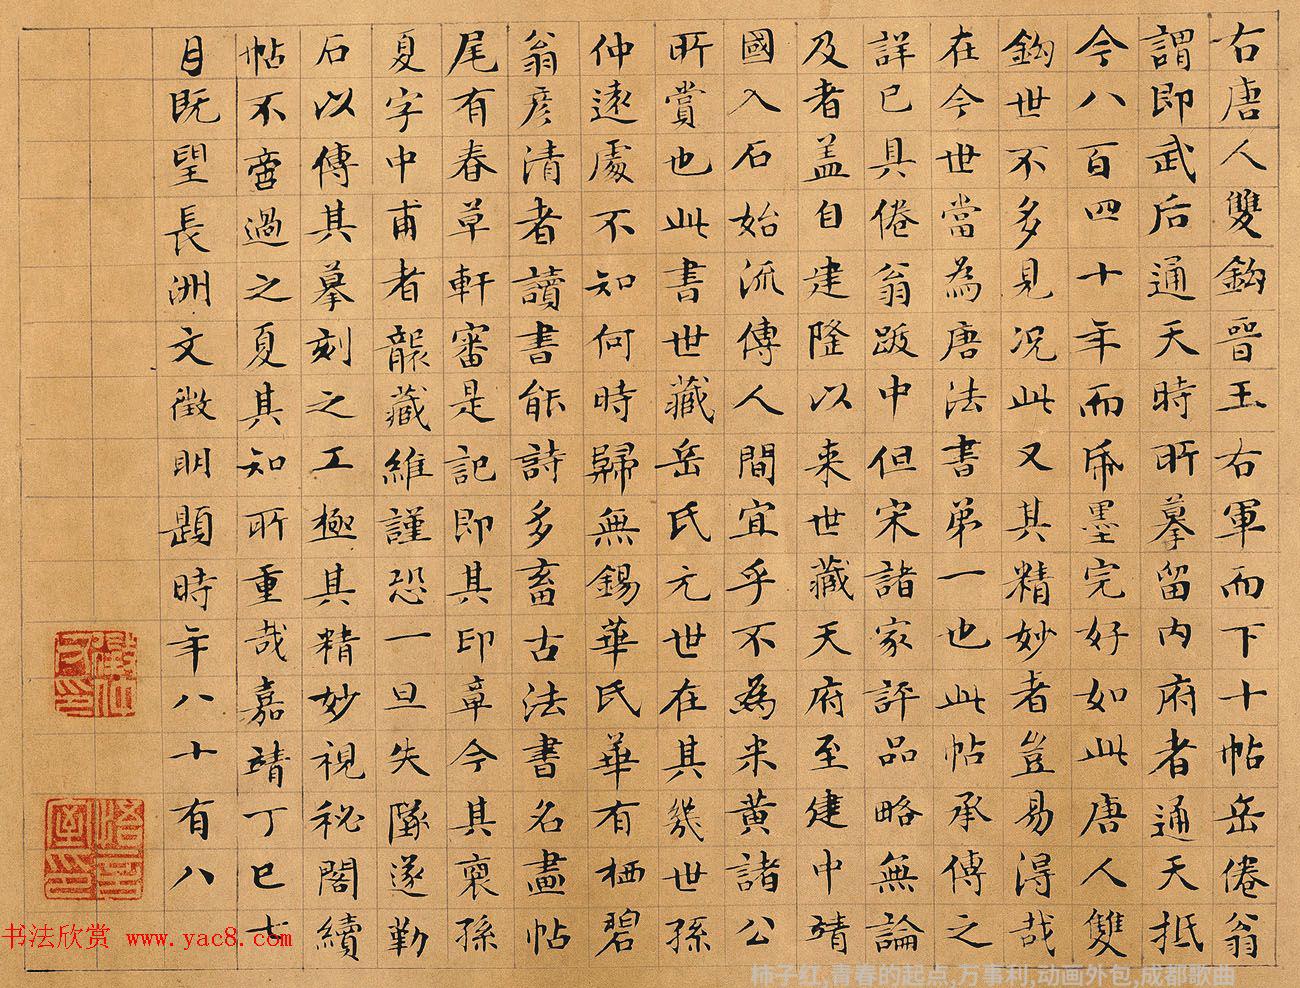 右唐人雙鈎晉王右軍而下十帖岳倦翁
謂即武后通天時所摹留內府者通天抵
今八百四十年而㡀墨完好如此唐人雙
鈎世不多見況此又其精妙者豈易得哉
在今世當為唐法書第一也此帖承傳之
詳已具倦翁跋中但宋諸家評品略無論
及者盖自建隆以来世藏天府至建中靖
國入石始流傳人間宜乎不為米黃諸公
所賞也此書世藏岳氏元世在其幾世孫
仲遠處不知何時歸無錫華氏華有栖碧
翁彦清者讀書能詩多畜古法書名畫帖
尾有春草軒審是記即其印章今其裔孫
夏字中甫者襲藏維謹恐一旦失墜遂勒
石以傳其摹刻之工極其精妙視秘閣續
帖不啻過之夏其知所重哉嘉靖丁巳七
月既望長洲文徵明題時年八十有八
徵仲父印
悟言室印
书法欣赏 www.yac8.com
柿子红,青春的起点,万事利,动画外包,成都歌曲